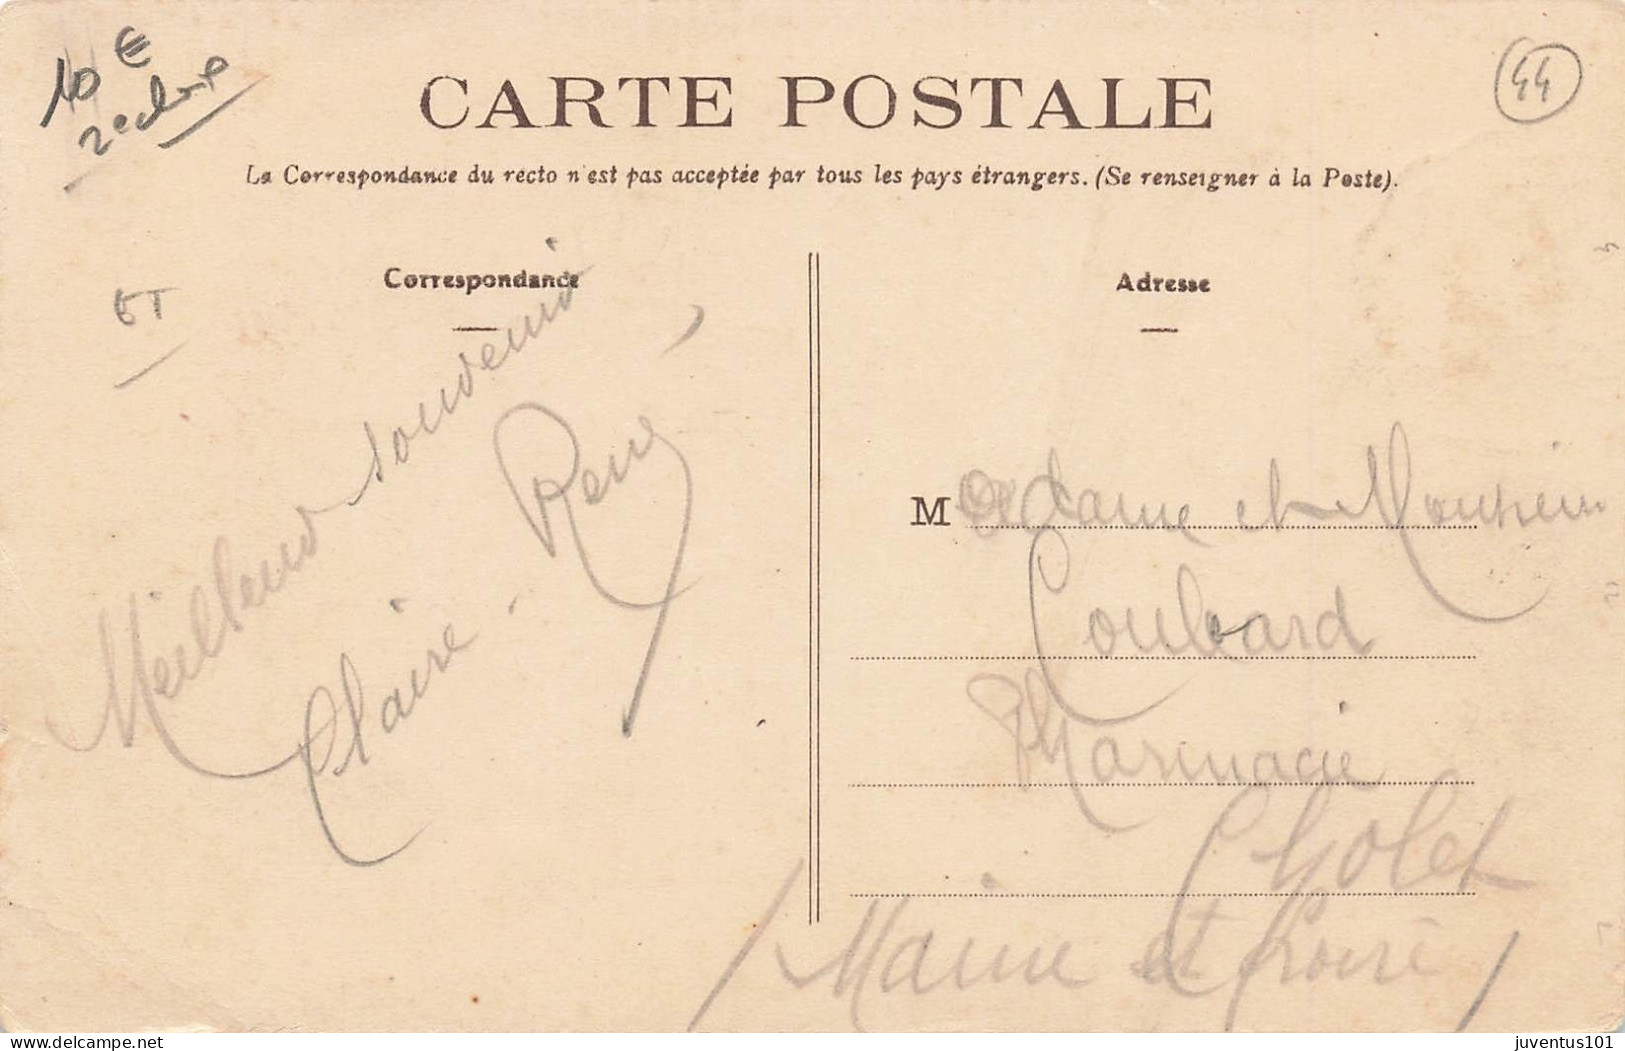 10 €
2e choix
44
CARTE POSTALE
La Correspondance du recto n'est pas acceptée par tous les pays étrangers. (Se renseigner à la Poste).
Correspondance
Adresse
ET
Meilleurs souvenirs
Claire - René
Madame et Monsieur
Coulbard
Pharmacie
Cholet
(Maine et Loire)
www.delcampe.net
juventus101